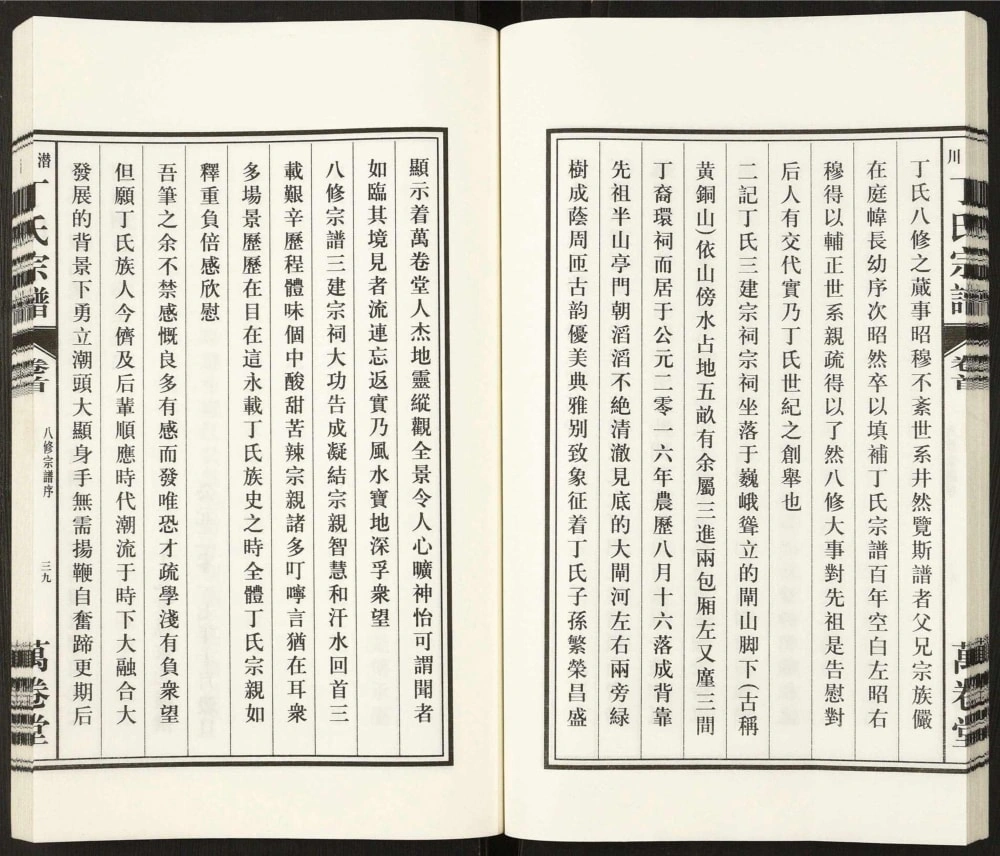 川
丁氏宗譜
卷首
萬卷堂
丁氏八修之蕆事昭穆不紊世系井然覽斯譜者父兄宗族儼
在庭幃長幼序次昭然卒以填補丁氏宗譜百年空白左昭右
穆得以輔正世系親疏得以了然八修大事對先祖是告慰對
后人有交代實乃丁氏世紀之創舉也
二記丁氏三建宗祠宗祠坐落于巍峨聳立的閘山脚下(古稱
黃銅山)依山傍水占地五畝有余屬三進兩包厢左又廑三間
丁裔環祠而居于公元二零一六年農歷八月十六落成背靠
先祖半山亭門朝滔滔不絶清澈見底的大閘河左右兩旁緑
樹成蔭周匝古韻優美典雅别致象征着丁氏子孫繁榮昌盛
顯示着萬卷堂人杰地靈縱觀全景令人心曠神怡可謂聞者
如臨其境見者流連忘返實乃風水寶地深孚衆望
八修宗譜三建宗祠大功告成凝結宗親智慧和汗水回首三
載艱辛歷程體味個中酸甜苦辣宗親諸多叮嚀言猶在耳衆
多場景歷歷在目在這永載丁氏族史之時全體丁氏宗親如
釋重負倍感欣慰
吾筆之余不禁感慨良多有感而發唯恐才疏學淺有負衆望
但願丁氏族人今儕及后輩順應時代潮流于時下大融合大
發展的背景下勇立潮頭大顯身手無需揚鞭自奮蹄更期后
潜
丁氏宗譜
卷首
八修宗譜序
三九
萬卷堂